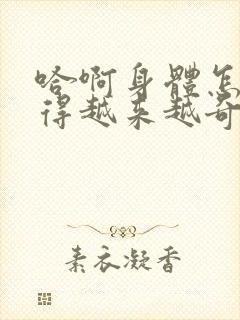 哈啊身體怎
得越来越奇
素衣凝香